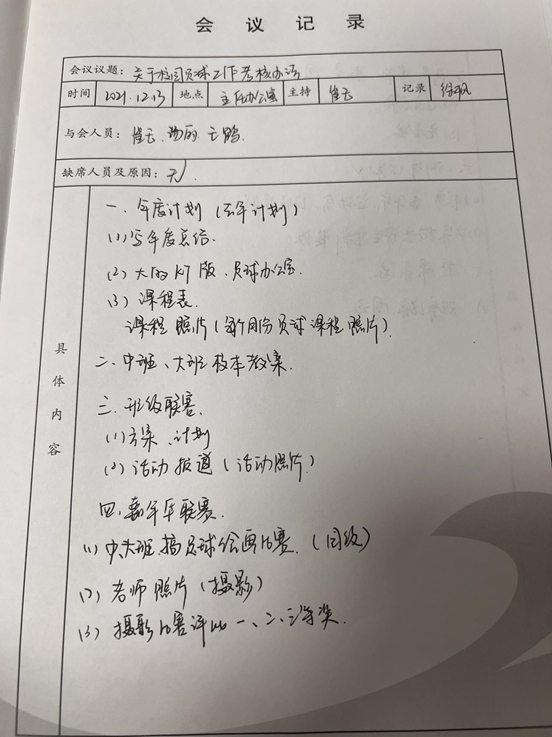 会议记录
会议议题：关于校园足球工作考核办法
时间 2021.12.13 地点 主任办公室 主持 崔云 记录
与会人员：崔云、杨丽、王鹏
缺席人员及原因：无
具体内容
一、年度计划（全年计划）
(1) 写年度总结.
(2) 大的KT版、足球办公室
(3) 课程表.
课程照片（每个月份足球课程照片）
二、中班、大班校本教案.
三、班级联赛.
(1) 方案、计划
(2) 活动报道（活动照片）
四、嘉年华联赛.
(1) 中大班搞足球绘画比赛.（年级）
(2) 老师照片（摄影）
(3) 摄影比赛评比一、二、三等奖.